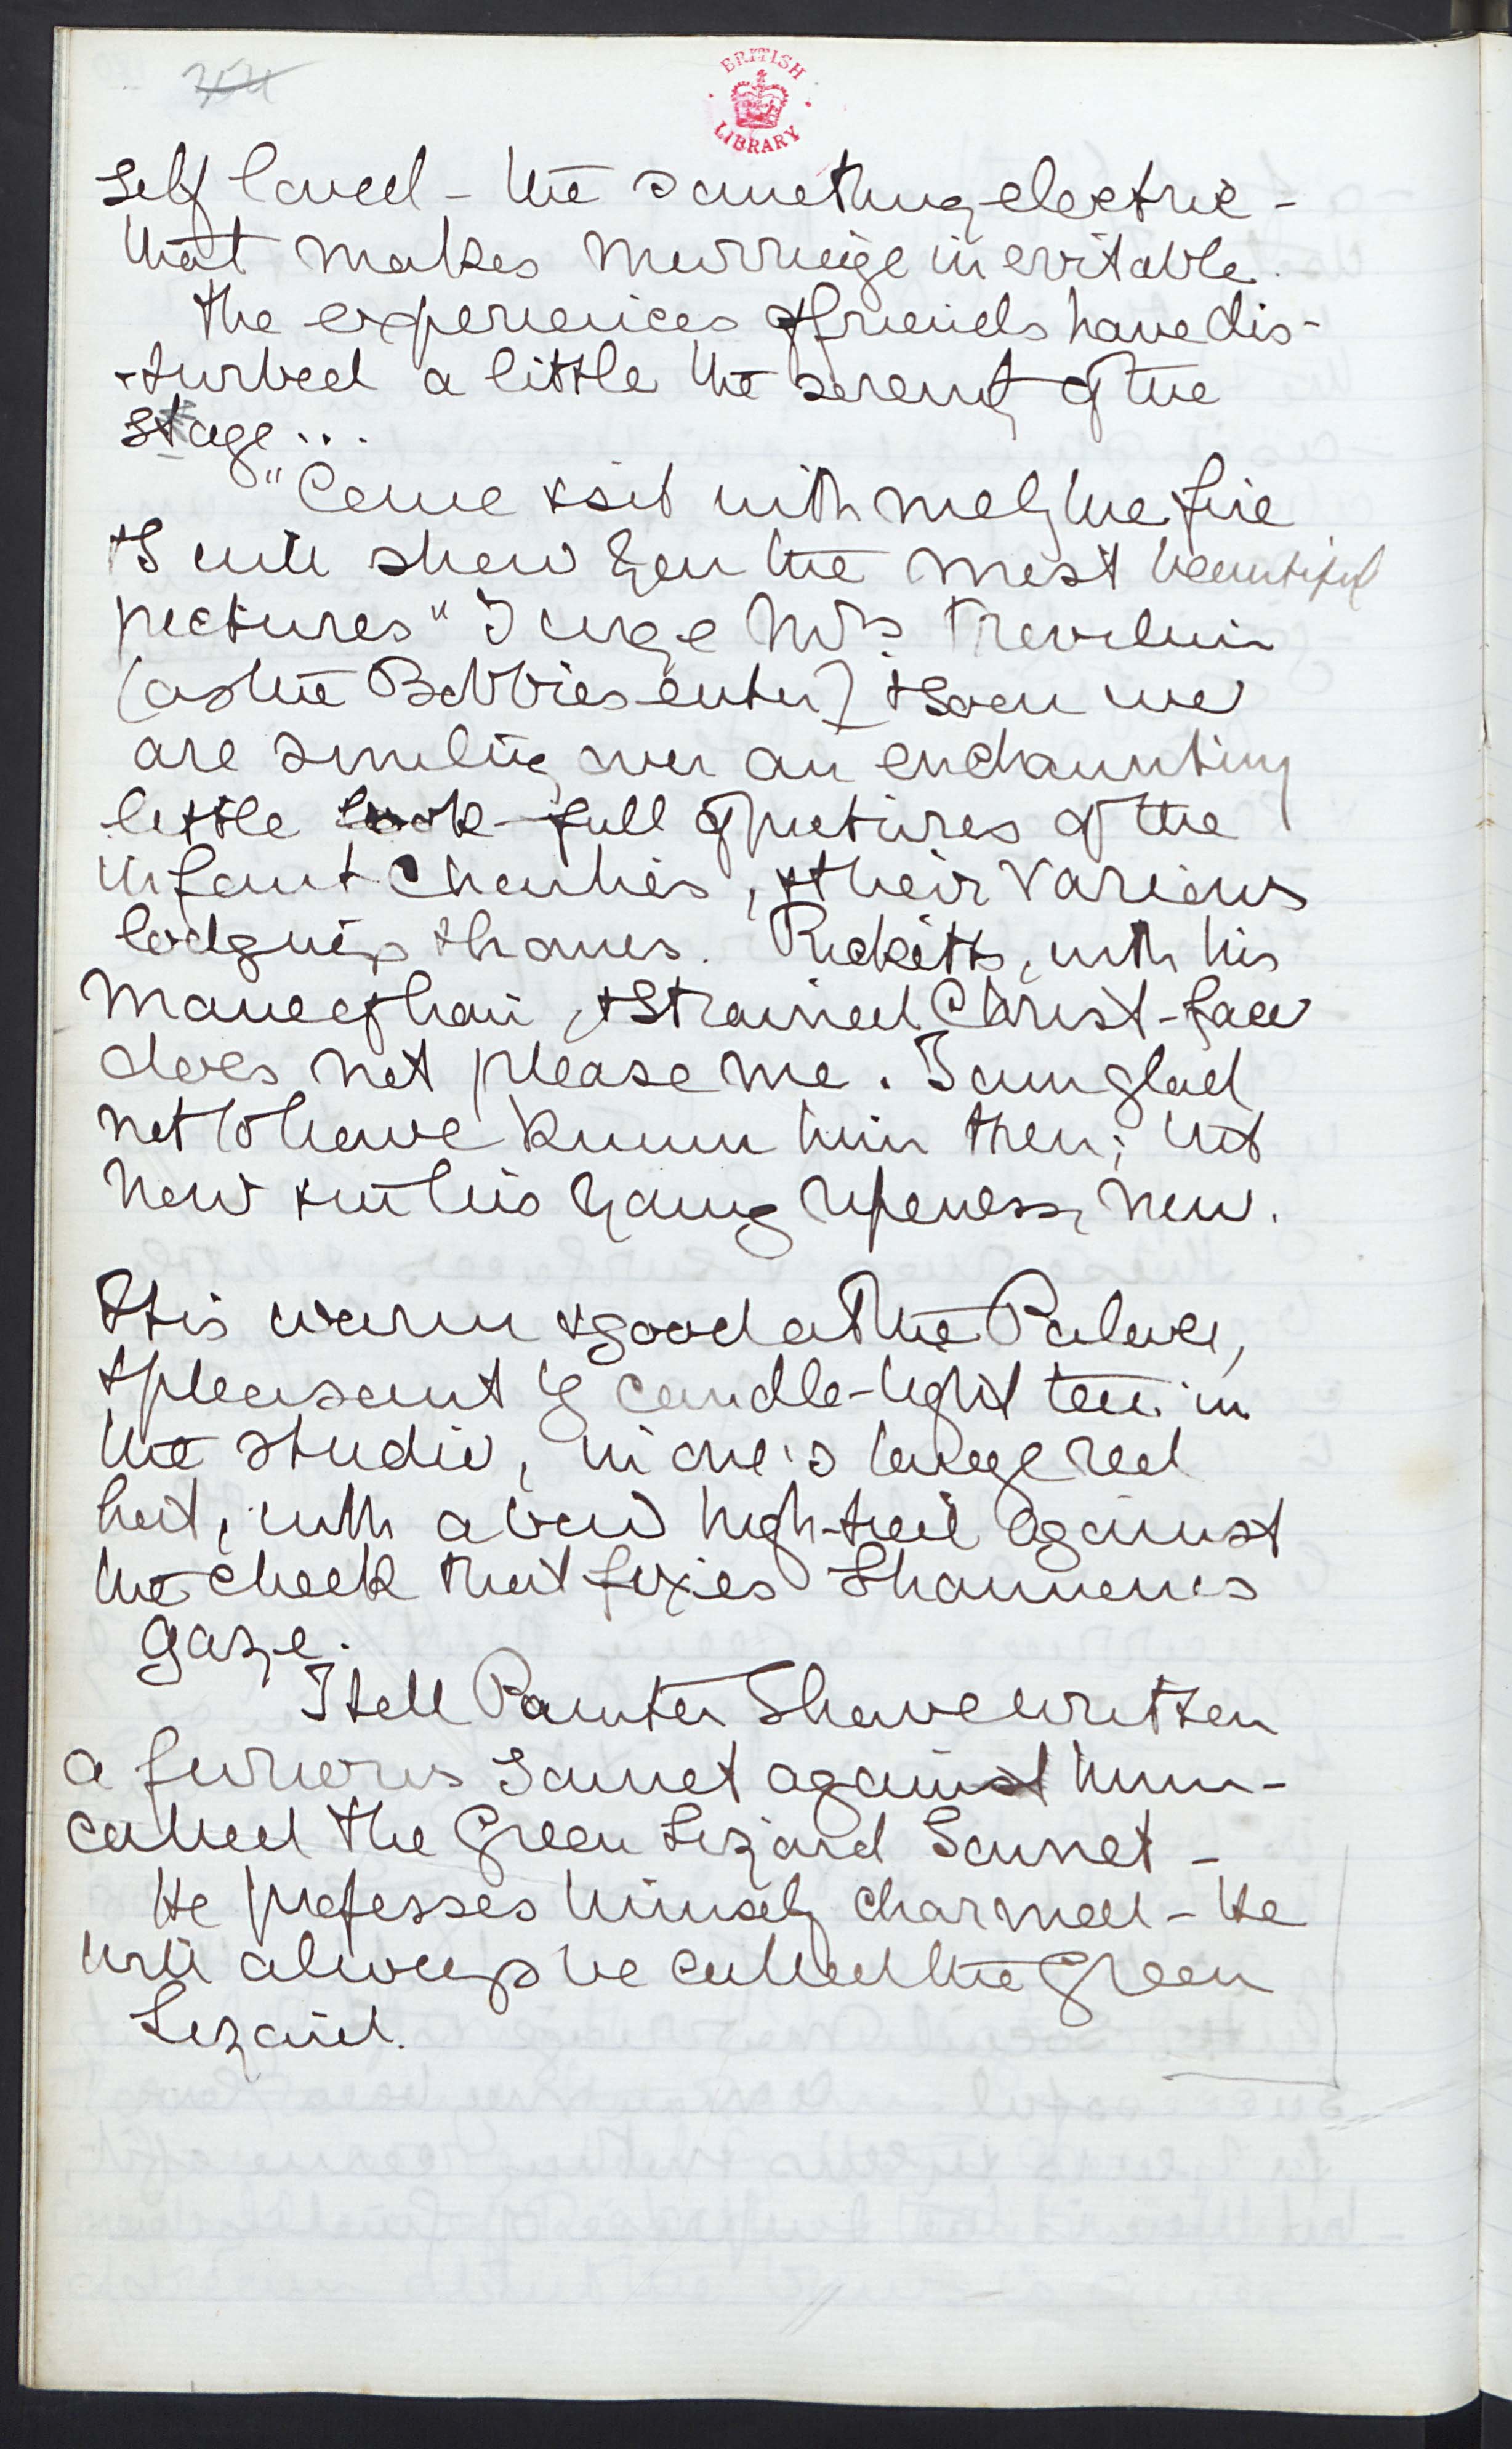 BRITISH
LIBRARY
self loved - the something electric -
that makes marriage inevitable.
The experiences of friends have dis-
-turbed a little the serenity of the
stage...
"Come & sit with me by the fire
& I will show you the most beautiful
pictures" I urge Mrs. Trevelyan
(as the Bobbies enter) & soon we
are smiling over an enchaunting
little book full of pictures of the
infant Charlies, & their various
lodgings & homes. Ricketts, with his
mane of hair, & strained Christ-face
does not please me. I am glad
not to have known him then; but
now & in his young ripeness, now.
It is warm & good at the Palace,
& pleasant by candle-light tea in
the studio, in one's large red
hat, with a bow high-tied against
the cheek that fixes Shannon's
gaze.
I tell Painter I have written
a furious Sonnet against him -
called the Green Lizard Sonnet -
He professes himself charmed - He
will always be called the Green
Lizard.